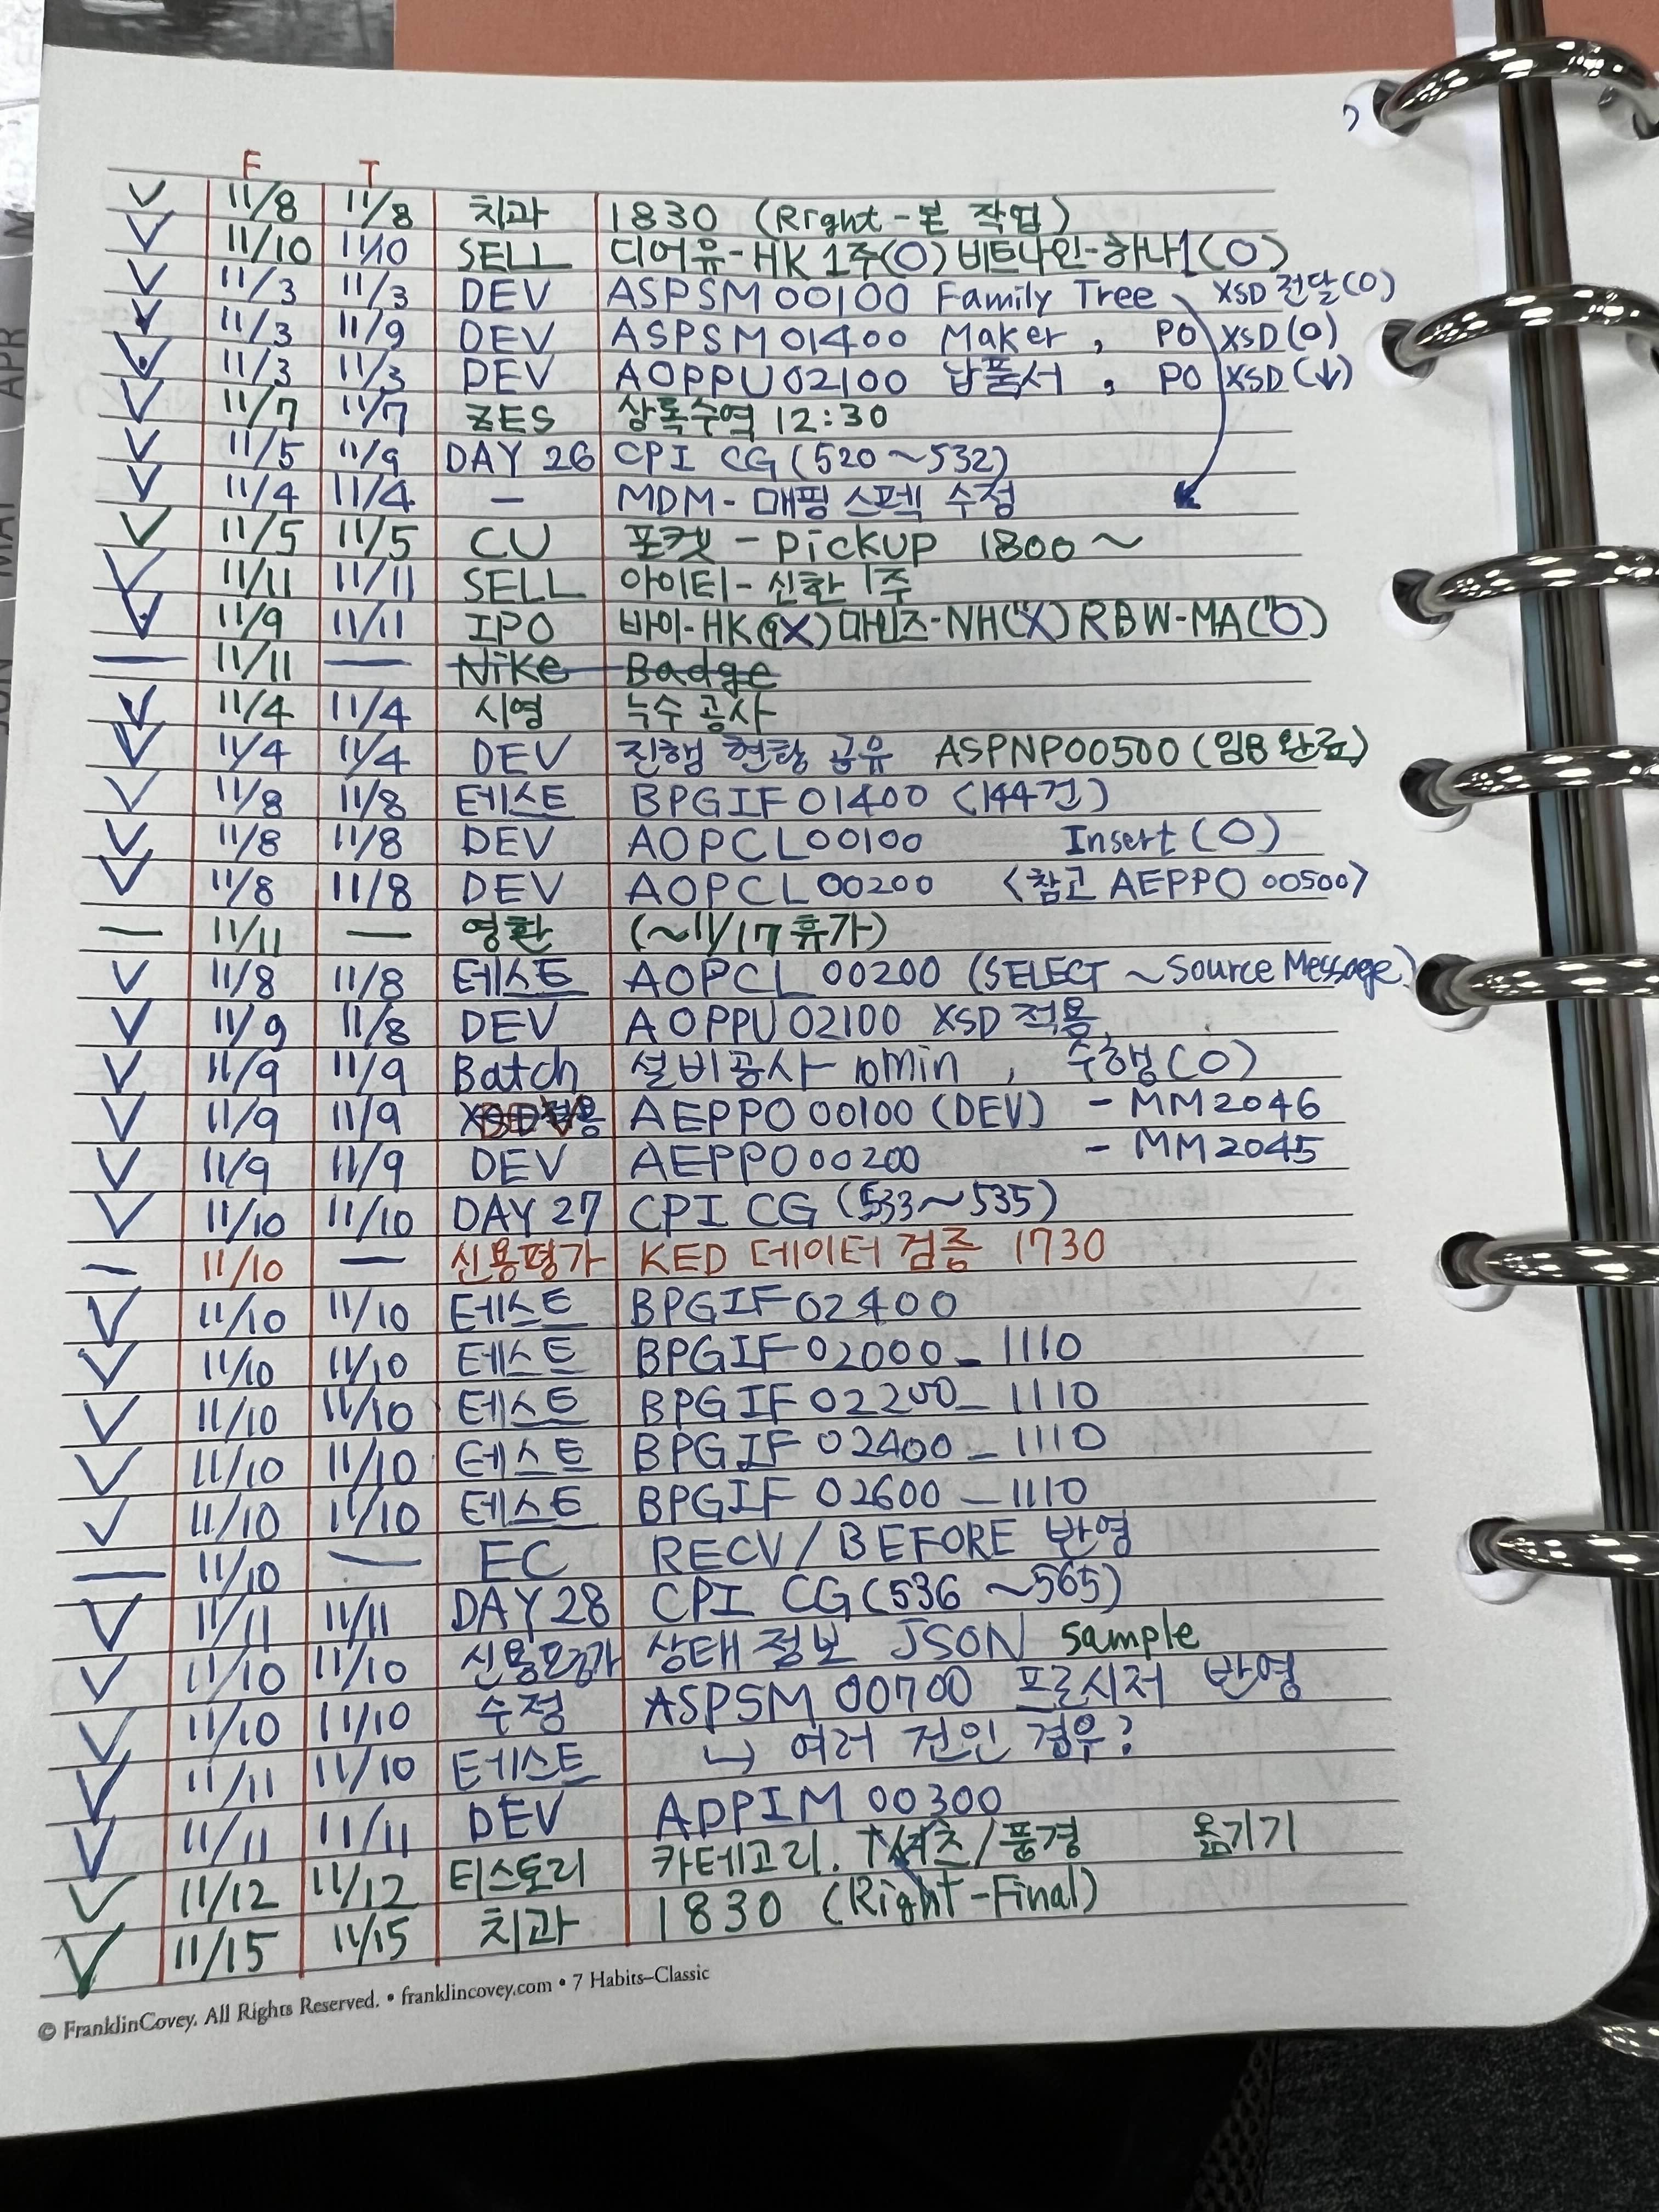 F T
V 11/8 11/8 치과 1830 (Right-본 작업)
V 11/10 11/10 SELL 디어유-HK 1주(O) 비트나인-하나1(O)
V 11/3 11/3 DEV ASPSM00100 Family Tree XSD 전달(O)
V 11/3 11/9 DEV ASPSM01400 Maker, PO XSD(O)
V 11/3 11/3 DEV AOPPU02100 납품서, PO XSD(↓)
V 11/7 11/7 ZES 상록수역 12:30
V 11/5 11/9 DAY 26 CPI CG (520~532)
V 11/4 11/4 - MDM-매핑 스펙 수정
V 11/5 11/5 CU 포켓 - pickup 1800~
V 11/11 11/11 SELL 아이티-신한 1주
V 11/9 11/11 IPO 바이-HK(X) 마인즈-NH("X) RBW-MA("O)
— 11/11 — Nike Badge
V 11/4 11/4 시영 누수 공사
V 11/4 11/4 DEV 진행 현황 공유 ASPNP00500 (임B 완료)
V 11/8 11/8 테스트 BPGIF01400 (144건)
V 11/8 11/8 DEV AOPCL00100 Insert(O)
V 11/8 11/8 DEV AOPCL00200 <참고 AEPPO00500>
— 11/11 — 영환 (~11/17 휴가)
V 11/8 11/8 테스트 AOPCL00200 (SELECT ~ Source Message)
V 11/9 11/8 DEV AOPPU02100 XSD 적용
V 11/9 11/9 Batch 설비공사-10min, 수행(O)
V 11/9 11/9 AEPPO00100 (DEV) - MM2046
V 11/9 11/9 DEV AEPPO00200 - MM2045
V 11/10 11/10 DAY 27 CPI CG (533~535)
— 11/10 — 신용평가 KED 데이터 검증 1730
V 11/10 11/10 테스트 BPGIF02400
V 11/10 11/10 테스트 BPGIF02000_1110
V 11/10 11/10 테스트 BPGIF02200_1110
V 11/10 11/10 테스트 BPGIF02400_1110
V 11/10 11/10 테스트 BPGIF02600_1110
— 11/10 — EC RECV/BEFORE 반영
V 11/11 11/11 DAY 28 CPI CG (536~565)
V 11/10 11/10 신용평가 상태 정보 JSON sample
V 11/10 11/10 수정 ASPSM00700 프로시저 반영
V 11/11 11/10 테스트 ↳ 여러 건인 경우?
V 11/11 11/11 DEV ADPIM00300
V 11/12 11/12 티스토리 카테고리. /풍경 옮기기
V 11/15 11/15 치과 1830 (Right-Final)
© FranklinCovey. All Rights Reserved. • franklincovey.com • 7 Habits–Classic
APR
MAY
JUN